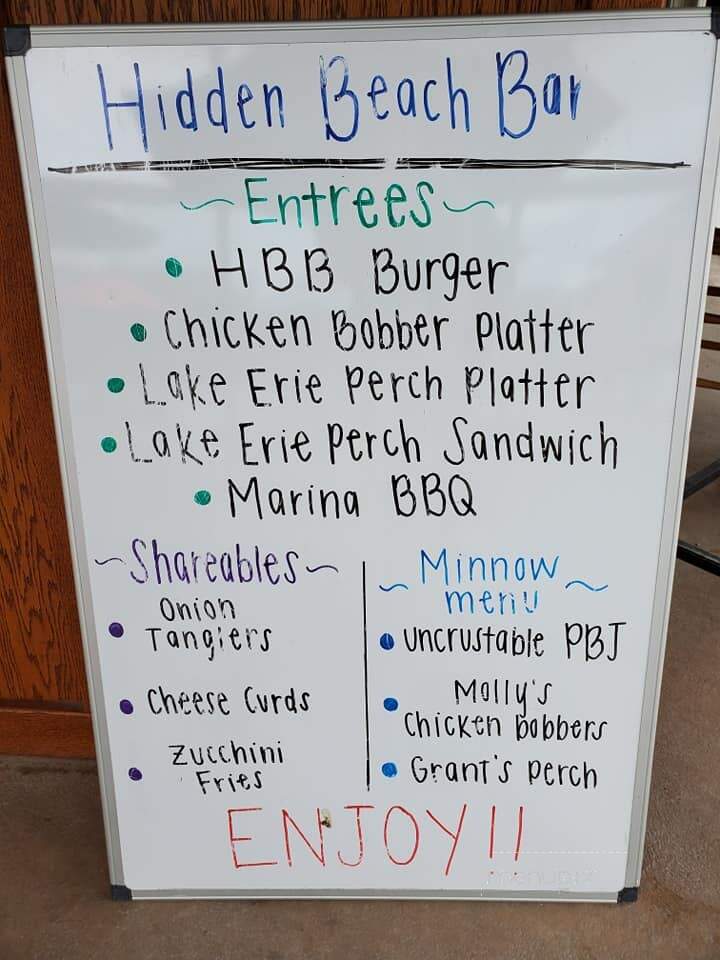 Hidden Beach Bar
~Entrees~
• HBB Burger
• Chicken Bobber Platter
• Lake Erie Perch Platter
• Lake Erie Perch Sandwich
• Marina BBQ
~Shareables~
• Onion
Tanglers
• Cheese Curds
• Zucchini
Fries
~Minnow
menu~
• uncrustable PBJ
• Molly's
Chicken bobbers
• Grant's perch
ENJOY!!
menupix